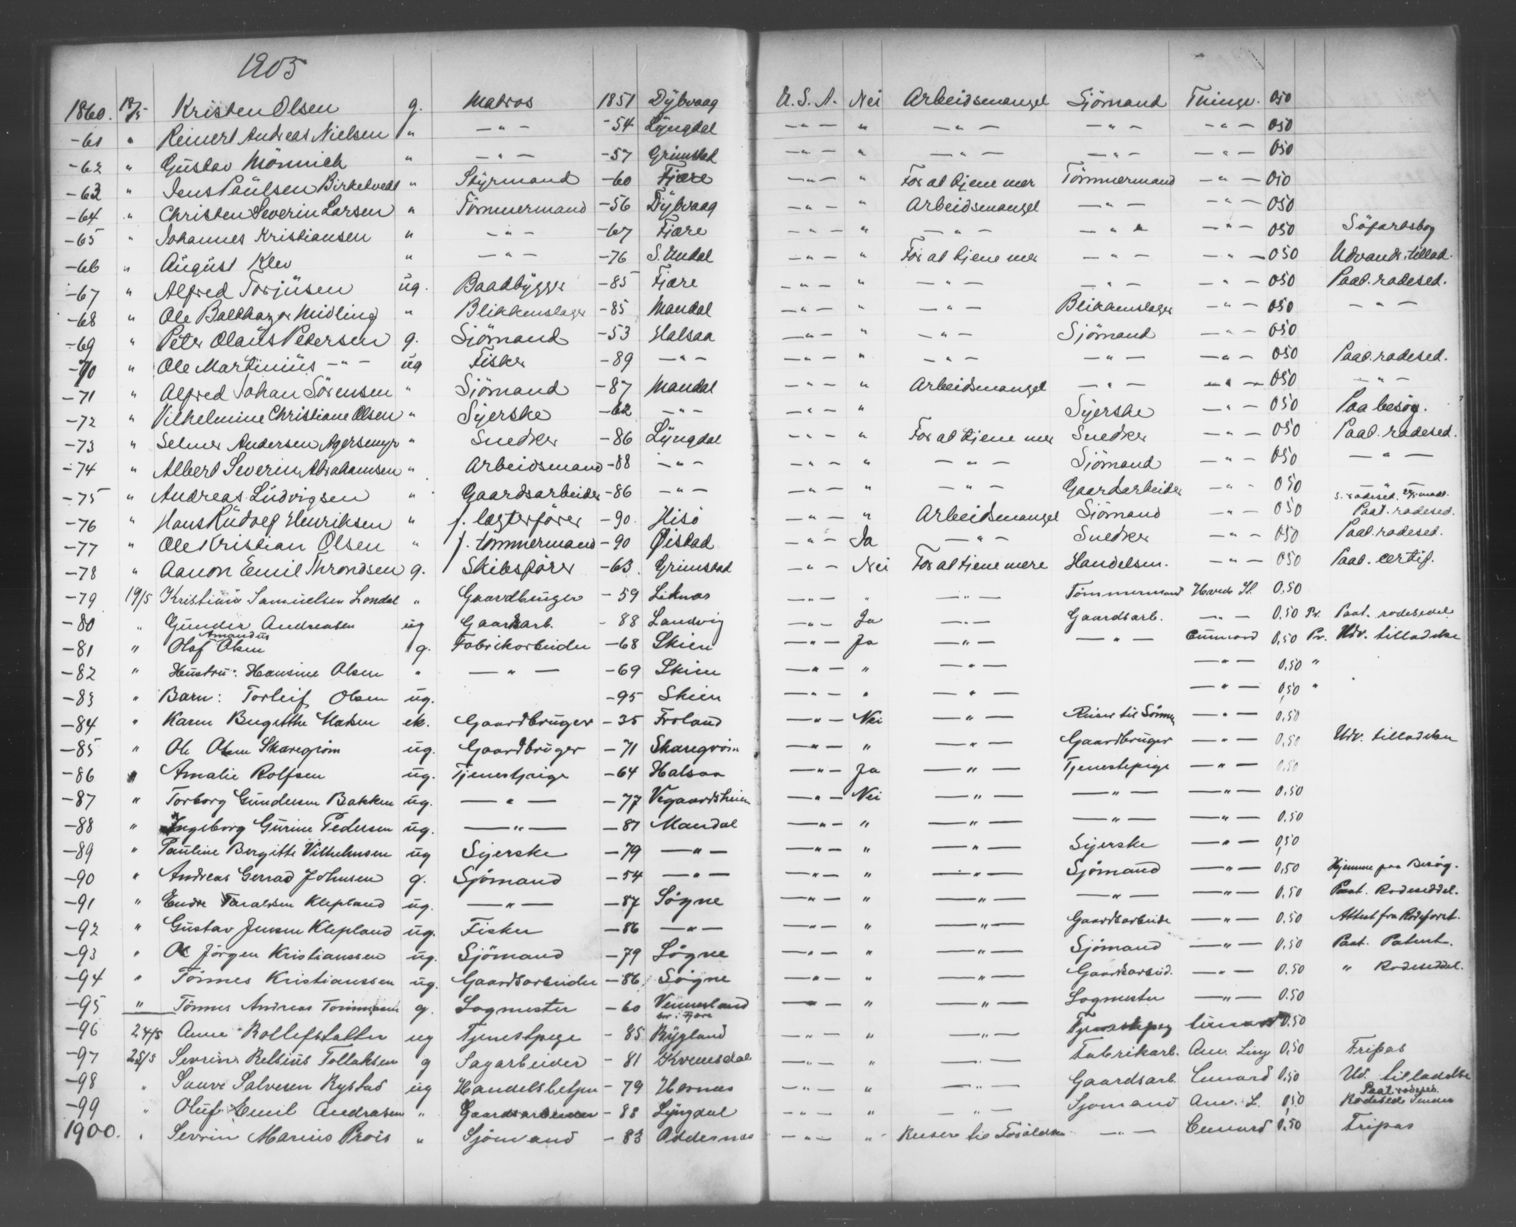 1905
1860. 18/5 Kristen Olsen g. Matros 1851 Dybvaag U.S.A. Nei Arbeidsmangel Sjömand Thingv. 050
-61 " Reinert Andreas Nielsen " -"- -54 Lyngdal -"- " -"- -"- -"- 050
-62 " Gustav Mönnich " -"- -57 Grimstad -"- " -"- -"- -"- 050
-63 " Jens Paulsen Birketvedt " Styrmand -60 Fjære -"- " For at tjene mer Tömmermand -"- 050
-64 " Christen Severin Larsen " Tömmermand -56 Dybvaag -"- " Arbeidsmangel -"- -"- 050
-65 " Johannes Kristiansen " -"- -67 Fjære -"- " -"- -"- -"- 050 Söfartsbog
-66 " August Klev " -"- -76 S. Undal -"- " For at tjene mer -"- -"- 050 Udvandr. tillad.
-67 " Alfred Torjusen ug. Baadbygger -85 Fjære -"- " -"- -"- -"- 050 Paat. rodesed.
-68 " Ole Balthazar Midling " Blikkenslager -85 Mandal -"- " -"- Blikkenslager -"- 050 -"-
-69 " Peter Olaus Petersen g. Sjömand -53 Halsaa -"- " -"- Sjömand -"- 050
-70 " Ole Martinius -"- ug Fisker -89 -"- -"- " -"- -"- -"- 050 Paat. rodesed.
-71 " Alfred Johan Sörensen " Sjömand -87 Mandal -"- " Arbeidsmangel -"- -"- 050 -"-
-72 " Vilhelmine Christiane Olsen " Syerske -62 -"- -"- " Syerske -"- 050 Paa besøg.
-73 " Selmer Andersen Agersmyr " Snedker -86 Lyngdal -"- " For at tjene mer Snedker -"- 050 Paat. rodesed.
-74 " Albert Severin Abrahamsen " Arbeidsmand -88 -"- -"- " -"- Sjömand -"- 050 -"-
-75 " Andreas Ludvigsen " Gaardsarbeider -86 -"- -"- " -"- Gaardarbeider -"- 050
-76 " Hans Rudolf Henriksen " f. lægterförer -90 Hisö -"- " Arbeidsmangel Sjömand -"- 050 Paat. rodesed.
-77 " Ole Kristian Olsen " f. tömmermand -90 Øistad -"- Ja -"- Snedker -"- 050 Paat. rodesed.
-78 " Aanon Emil Throndsen g. Skibsförer -63 Grimstad -"- Nei For at tjene mere Handelsm. -"- 050 Paat. certif.
-79 19/5 Kristian Samuelsen Londal " Gaardbruger -59 Liknes -"- " -"- Tömmermand 0.50
-80 " Gunder Andreasen ug Gaardsarb. -88 Landvig -"- Ja -"- Gaardsarb. -"- 0.50 Pr. Paat. rodeseddel
-81 " Olaf Amandus Olsen g. Fabrikarbeider -68 Skien -"- Ja -"- -"- Cunnard 0,50 Pr. Udv. tilladelse
-82 " Hustru: Hansine Olsen " -"- -69 Skien -"- " -"- -"- 0,50 "
-83 " Barn: Torleif Olsen ug. -95 Skien -"- " -"- -"- 0,50 "
-84 " Karen Birgitthe Madsen ek. Gaardbruger -35 Froland -"- Nei -"- Reiser til Sönnen -"- 0,50
-85 " Ole Olsen Skaregröm ug. Gaardbruger -71 Skaregröm -"- " -"- Gaardbruger -"- 0,50 Udv. tilladelsen
-86 " Amalie Rolfsen ug. Tjenestpige -64 Halsaa -"- Ja -"- Tjenestepige -"- 0.50
-87 " Torborg Gundersen Bakken ug. -"- -77 Vegaardsheien -"- Nei -"- -"- -"- 0.50
-88 " Ingeborg Gurine Pedersen ug. -"- -87 Mandal -"- " -"- -"- -"- 0.50
-89 " Pauline Bergitte Vilhelmsen ug Syerske -79 -"- -"- " -"- Syerske -"- 0,50
-90 " Andreas Gerrad Johnsen g. Sjömand -54 -"- -"- " -"- Sjömand -"- 0,50 Hjemme paa Besøg.
-91 " Endre Taraldsen Klepland ug. -"- -87 Søgne -"- " -"- -"- -"- 0.50 Paat. Rodeseddel.
-92 " Gustav Jensen Klepland ug. Fisker -86 -"- -"- " -"- Gaardsarbeide -"- 0.50 Attest fra Rodeforst.
-93 " Ole Jörgen Kristianssen ug. Sjömand -79 Søgne -"- " -"- Sjömand -"- 0.50 Paat. Patent.
-94 " Tönnes Kristianssen ug. Gaardsarbeider -86 Søgne -"- " -"- Gaardsarbeid. -"- 0.50 " Rodeseddel.
-95 " Tönnes Andreas Tönnessen g. Logmester -60 Vennesland -"- " -"- Logmester -"- 0.50
-96 24/5 Anne Rollefstatter ug Tjenestpege -85 Bygland -"- " -"- Tjenestepeg Cunard 0.50
-97 25/5 Sevrin Beldius Tollaksen g Sagarbeider -81 Kvinesdal -"- " -"- Fabrikarb. Am. Linj 0,50 Fripas
-98 " Salvesen Rystad ug Handelsbetjen -79 Hornnes -"- " -"- Gaardsarb. Cunard 0,50 Ud. tilladelse
-99 " Oluf Emil Andrasen " Gaardsarbeider -88 Lyngdal -"- " -"- Sjomand Am. L. 0,50 Paat. rodesed.
1900. " Sevrin Marius Brois " Sjömand -83 Oddernes -"- " Reiser til Foreldre -"- Cunard 0,50 Fripas